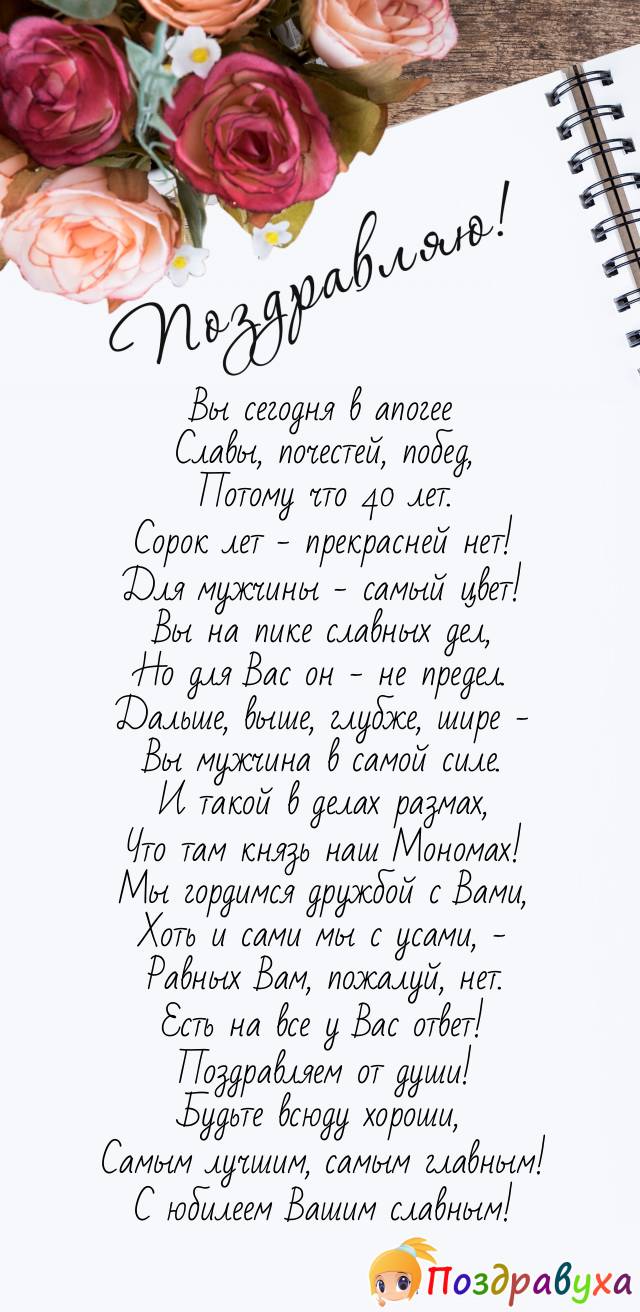 Поздравляю!
Вы сегодня в апогее
Славы, почестей, побед,
Потому что 40 лет.
Сорок лет - прекрасней нет!
Для мужчины - самый цвет!
Вы на пике славных дел,
Но для Вас он - не предел.
Дальше, выше, глубже, шире -
Вы мужчина в самой силе.
И такой в делах размах,
Что там князь наш Мономах!
Мы гордимся дружбой с Вами,
Хоть и сами мы с усами, -
Равных Вам, пожалуй, нет.
Есть на все у Вас ответ!
Поздравляем от души!
Будьте всюду хороши,
Самым лучшим, самым главным!
С юбилеем Вашим славным!
Поздравуха